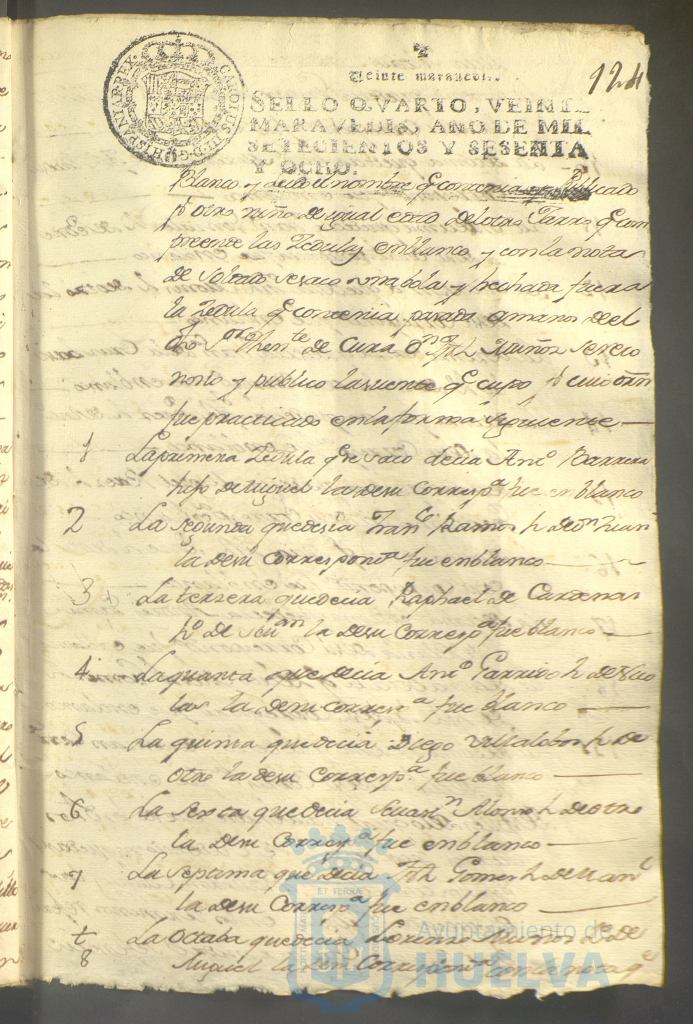 124
Veinte maravedis.
SELLO QVARTO, VEINTE
MARAVEDIS, AÑO DE MIL
SETECIENTOS Y SESENTA
Y OCHO.
CAROLUS III D.G. HISPANIAR REX
Blanco y leido el nombre q contenia publicado
pr otro niño de igual edad del otro Jarro q com
preende las Zedulas en blanco y con la nota
de Soldado se saco una bola y hechada fuera
la Zedula q contenia parada a manos del
dho Sor thente de Cura Dn Muñoz se reco
nosio y publico la suerte q cupo
fue practicado en la forma siguiente
1 La primera Zedula q se saco decia Anto Barrera
hijo de Miguel la de su Correspa fue en blanco
2 La segunda que decia Franco Ramos h de Juan
la de su Correspondta fue en blanco
3 La tersera que decia Raphael de Cardenas
ho de la de su Correspa fue blanco
4 La quarta que decia Anto Garrido h de Nico
las la de su Corresa fue blanco
5 La quinta que decia Diego Villalobos h de
otro la de su Correspa fue blanco
6 La sexta que decia Alonso h de otro
la de su Correspa fue en blanco
7 La septima que decia Gomes h de
la de su Correspa fue en blanco
t
8 La Octaba que decia Lorenzo Muños h de
Miguel la de su Correspondta con la nota q
ET TERRAE
Ayuntamiento de
HUELVA